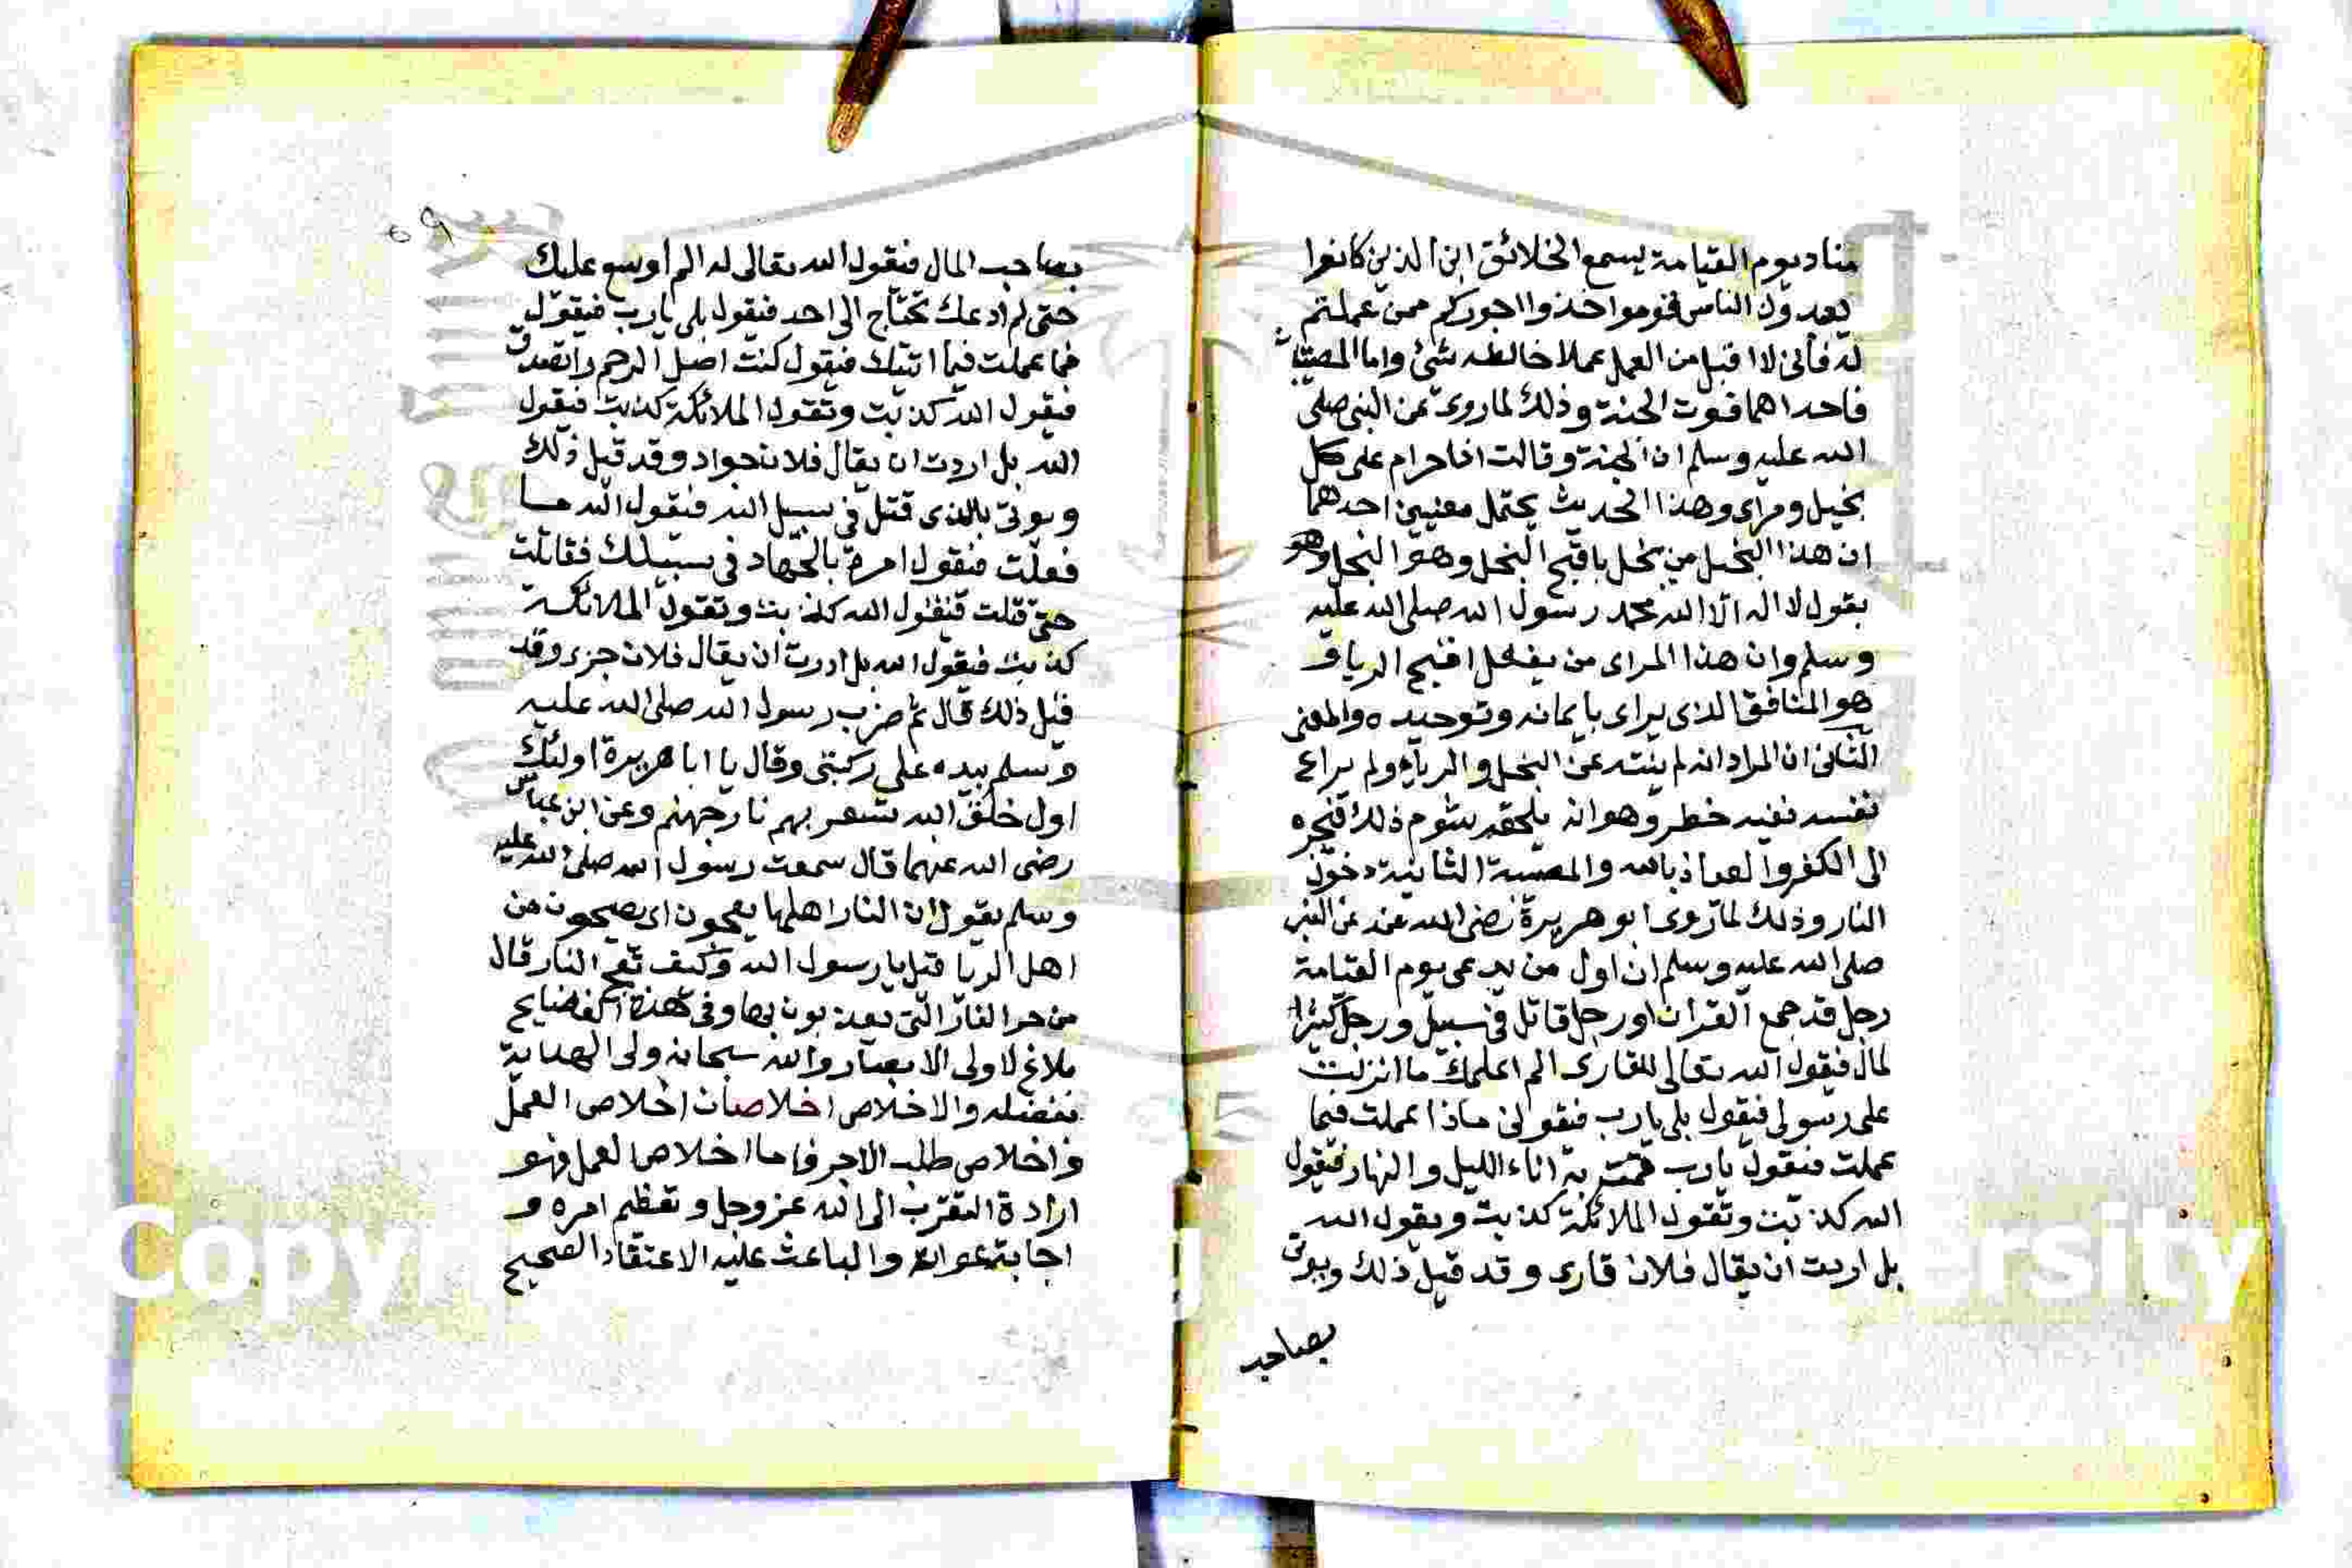 مناد يوم القيامة يسمع الخلائق اين الذين كانوا
يعبدون الناس قوموا خذوا اجوركم ممن عملتم
له فأنى لا اقبل من العمل عملا خالطه شئ واما المصيبتان
فاحداهما فوت الجنة وذلك لما روى عن النبى صلى
الله عليه وسلم ان الجنة وقالت انا حرام على كل
بخيل ومراى وهذا الحديث يحتمل معنيين احدهما
ان هذا البخيل من بخل باقبح البخل وهو البخل وهو
بقول لا اله الا الله محمد رسول الله صلى الله عليه
وسلم وان هذا المراى من يفعل اقبح الريا و
هو المنافق الذى يراى بايمانه وتوحيده والمعنى
الثانى ان المراد انه لم ينته عن البخل والرياء ولم يراع
نفسه ففيه خطر وهو انه يلحقه شوم ذلك فيجره
الى الكفر والعياذ بالله والمصيبة الثانية دخول
النار وذلك لما روى ابو هريرة رضى الله عنه عن النبى
صلى الله عليه وسلم ان اول من يدعى يوم القيامة
رجل قد جمع القران ورجل قاتل فى سبيل ورجل كثير ا
لمال فيقول الله تعالى للقارى الم اعلمك ما انزلت
على رسولى فيقول بلى يارب فيقول ماذا عملت فيما
عملت فيقول يارب قمت به اناء الليل والنهار فيقول
الله كذبت وتقول الملائكة كذبت ويقول الله
بل اردت ان يقال فلان قارى وقد قيل ذلك ويوتى
بصاحب
٥٩
بصاحب المال فيقول الله تعالى له الم اوسع عليك
حتى لم ادعك تحتاج الى احد فيقول بلى يارب فيقول
فما عملت فيما اتيتك فيقول كنت اصل الرحم واتصدق
فيقول الله كذبت وتقول الملائكة كذبت فيقول
الله بل اردت ان يقال فلان جواد وقد قيل ذلك
ويوتى بالذى قتل فى سبيل الله فيقول الله ما
فعلت فيقول امرت بالجهاد فى سبيلك فقاتلت
حتى قتلت فيقول الله كذبت وتقول الملائكة
كذبت فيقول الله بل اردت ان يقال فلان جرى وقد
قيل ذلك قال ثم ضرب رسول الله صلى الله عليه
وسلم بيده على ركبتى وقال يا ابا هريرة اولئك
اول خلق الله تسعر بهم نار جهنم وعن ابن عباس
رضى الله عنهما قال سمعت رسول الله صلى الله عليه
وسلم يقول ان النار اهلها يعجون اى يصيحون من
اهل الريا قيل يا رسول الله وكيف تعج النار قال
من حر النار التى يعذبون بها وفى هذه الفضايح
بلاغ لاولى الابصار والله سبحانه ولى الهداية
بفضله والاخلاص اخلاصان اخلاص العمل
واخلاص طلب الاجر فاما اخلاص العمل فهو
ارادة التقرب الى الله عز وجل وتعظيم امره و
اجابة والباعث عليه الاعتقاد الصحيح